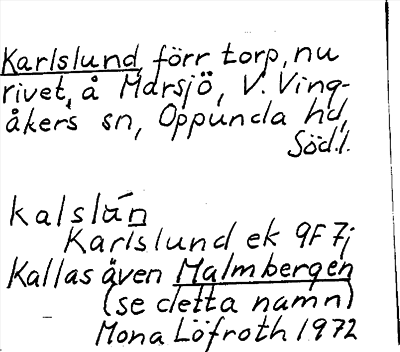 Karlslund, förr torp, nu
rivet, å Marsjö, V. Ving-
åkers sn, Oppunda hd,
Södl.
kalslún
Karlslund ek 9F7j
Kallas även Malmbergen
(se detta namn)
Mona Löfroth 1972